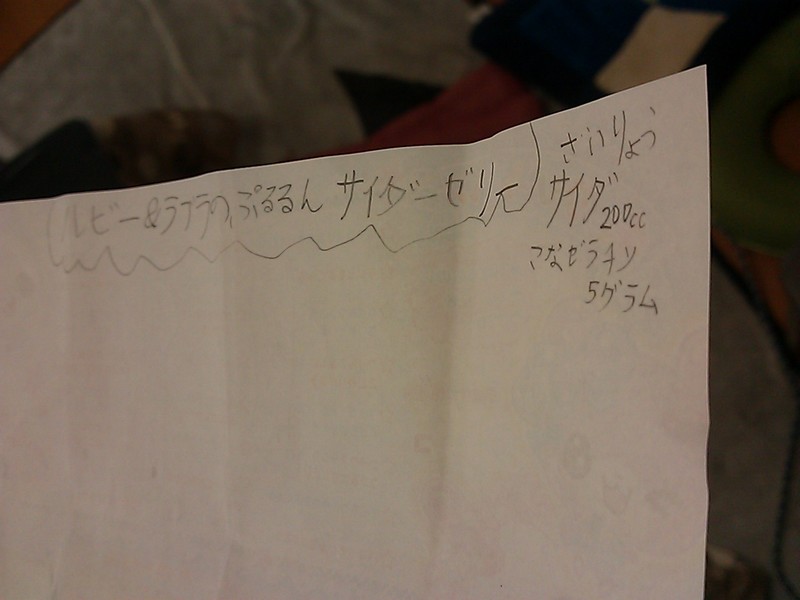 ルビー&ラブラのぷるるん サイダーゼリー
ざいりょう
サイダ
200cc
こなゼラチン
5グラム